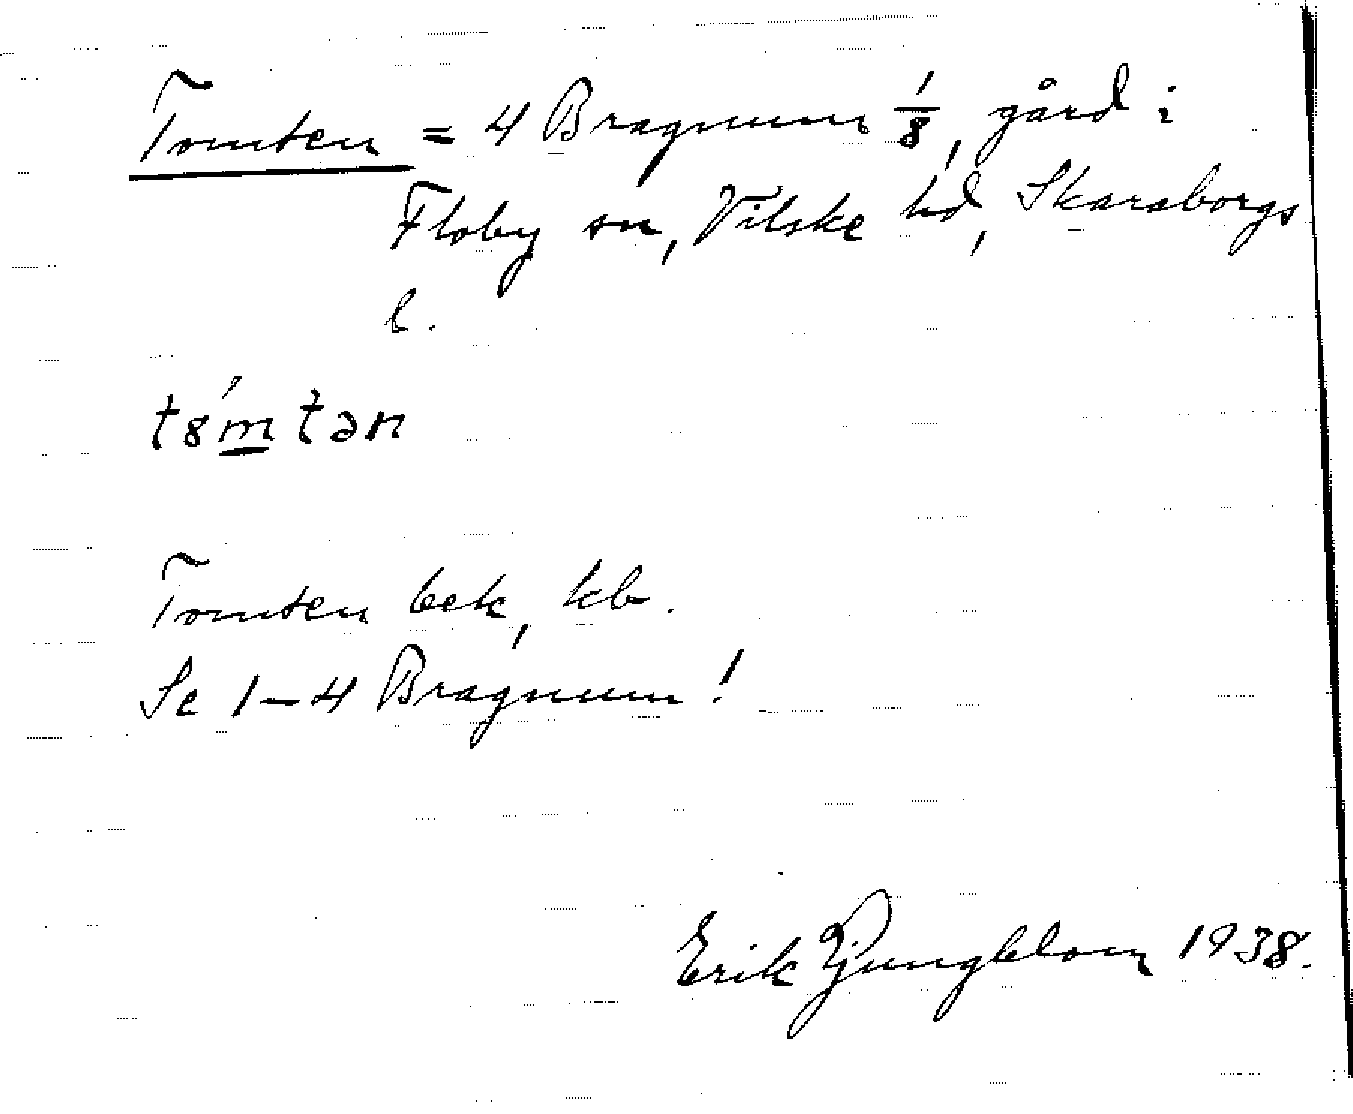 Tomten = 4 Bragnum 1/8, gård i
Floby sn, Vilske hd, Skaraborgs
l.
t8́m̲tən
Tomten bek, kb.
Se 1–4 Bragnum!
Erik Ljungblom 1938.